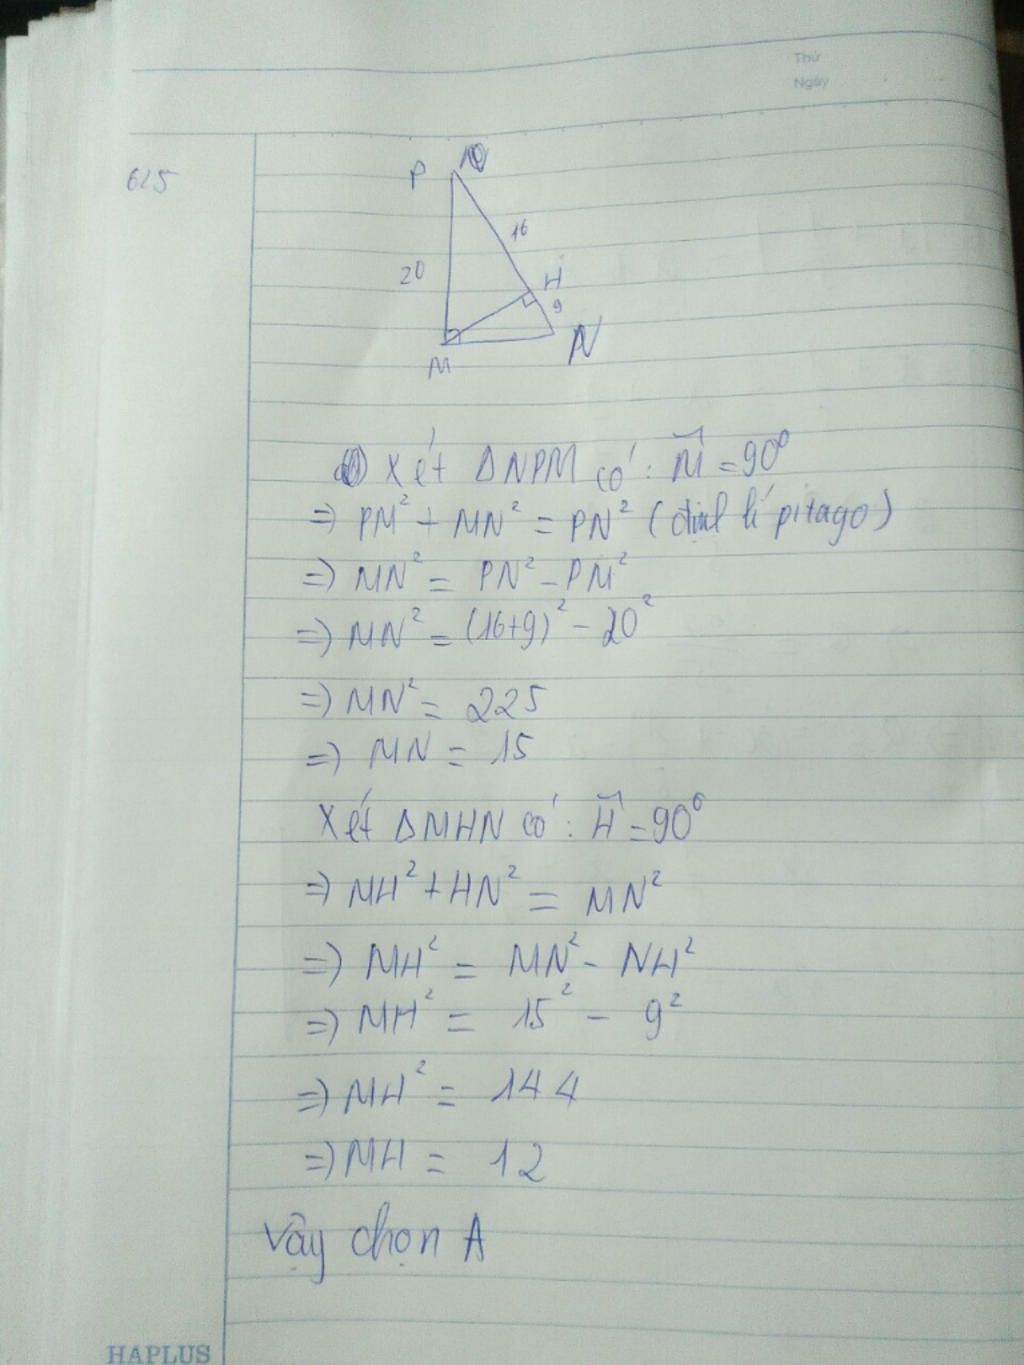 Thứ
Ngày
625
P
16
20
H
9
M
N
Xét ΔNPM có: M̂ = 90⁰
=) PM² + MN² = PN² (định lí pitago)
=) MN² = PN² - PM²
=) MN² = (16+9)² - 20²
=) MN² = 225
=) MN = 15
Xét ΔMHN có: Ĥ = 90⁰
=) MH² + HN² = MN²
=) MH² = MN² - NH²
=) MH² = 15² - 9²
=) MH² = 144
=) MH = 12
Vậy chọn A
HAPLUS